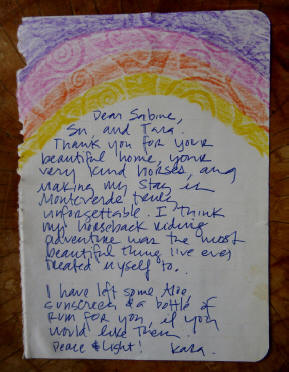 Dear Sabine,
Su, and Tara.
Thank you for your
beautiful home, your
very kind horses, and
making my stay in
Monteverde truly
unforgettable. I think
my horseback riding
adventure was the most
beautiful thing I've ever
treated myself to.
I have left some Aloe
sunscreen & a bottle of
rum for you, if you
would like them.
Peace & Light! Kara.